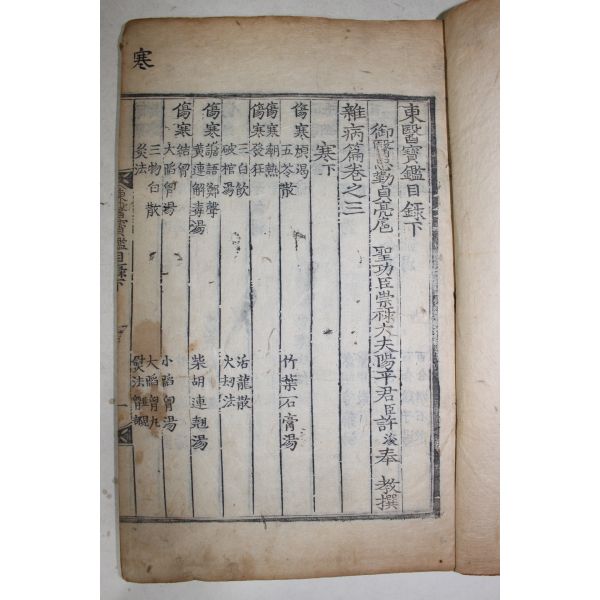 東醫寶鑑目錄下
御醫忠勤貞亮扈 聖功臣崇祿大夫陽平君臣許浚奉 教撰
雜病篇卷之三
寒下
傷寒煩渴
五苓散 竹葉石膏湯
傷寒潮熱
傷寒發狂
三白飮 活龍散
破棺湯 火劫法
傷寒譫語鄭聲
黃連解毒湯 柴胡連翹湯
傷寒結胷
大陷胷湯 小陷胷湯
三物白散 大陷胷丸
熨法
東醫寶鑑目錄下
一
寒